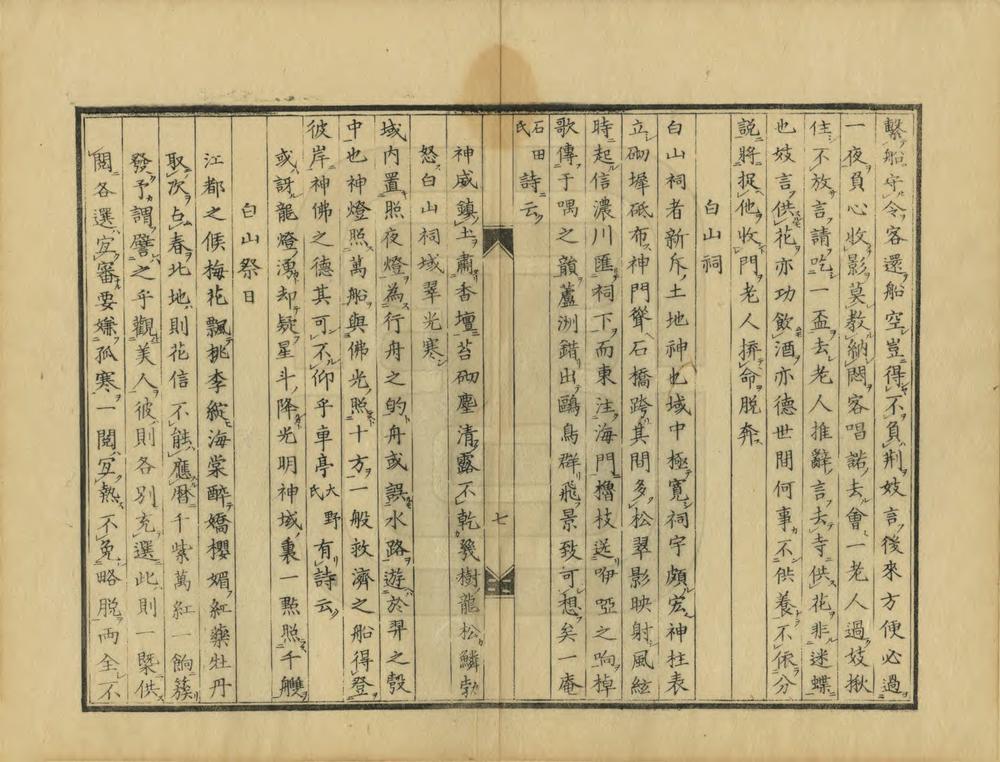 繫船守令客還船空豈得不負荆妓言後來方便必過
一夜負心收影莫教納悶客唱諾去會一老人過妓揪
住不放言請吃一盃去老人推辭言去寺供花非迷蝶
也妓言供花亦功飲酒亦德世間何事不供養不依分
說將捉他收門老人擠命脫奔
白山祠
白山祠者新斥土地神也域中極寬祠宇頗宏神柱表
立砌墀砥布神門聳石橋跨其間多松翠影映射風絃
時起信濃川匯祠下而東注海門櫓枝送咿啞之响棹
歌傳于喁之韻蘆洲錯出鷗鳥群飛景致可想矣一庵
石田氏詩云
神威鎮土肅香壇苔砌塵清露不乾幾樹龍松鱗勃
怒白山祠域翠光寒
域內置照夜燈為行舟之的舟或誤水路遊於羿之彀
中也神燈照萬船與佛光照十方一般救濟之船得登
彼岸神佛之德其可不仰乎車亭大野氏有詩云
或訝龍燈湧却疑星斗降光明神域裏一點照千艭
白山祭日
江都之候梅花飄桃李綻海棠醉嬌櫻媚紅藥牡丹
取次占春北地則花信不能應曆千紫萬紅一餉簇
發予謂譬之乎觀美人彼則各別充選此則一槩供
閱各選宜審要嫌孤寒一閱宜熱不免略脫兩全不
七